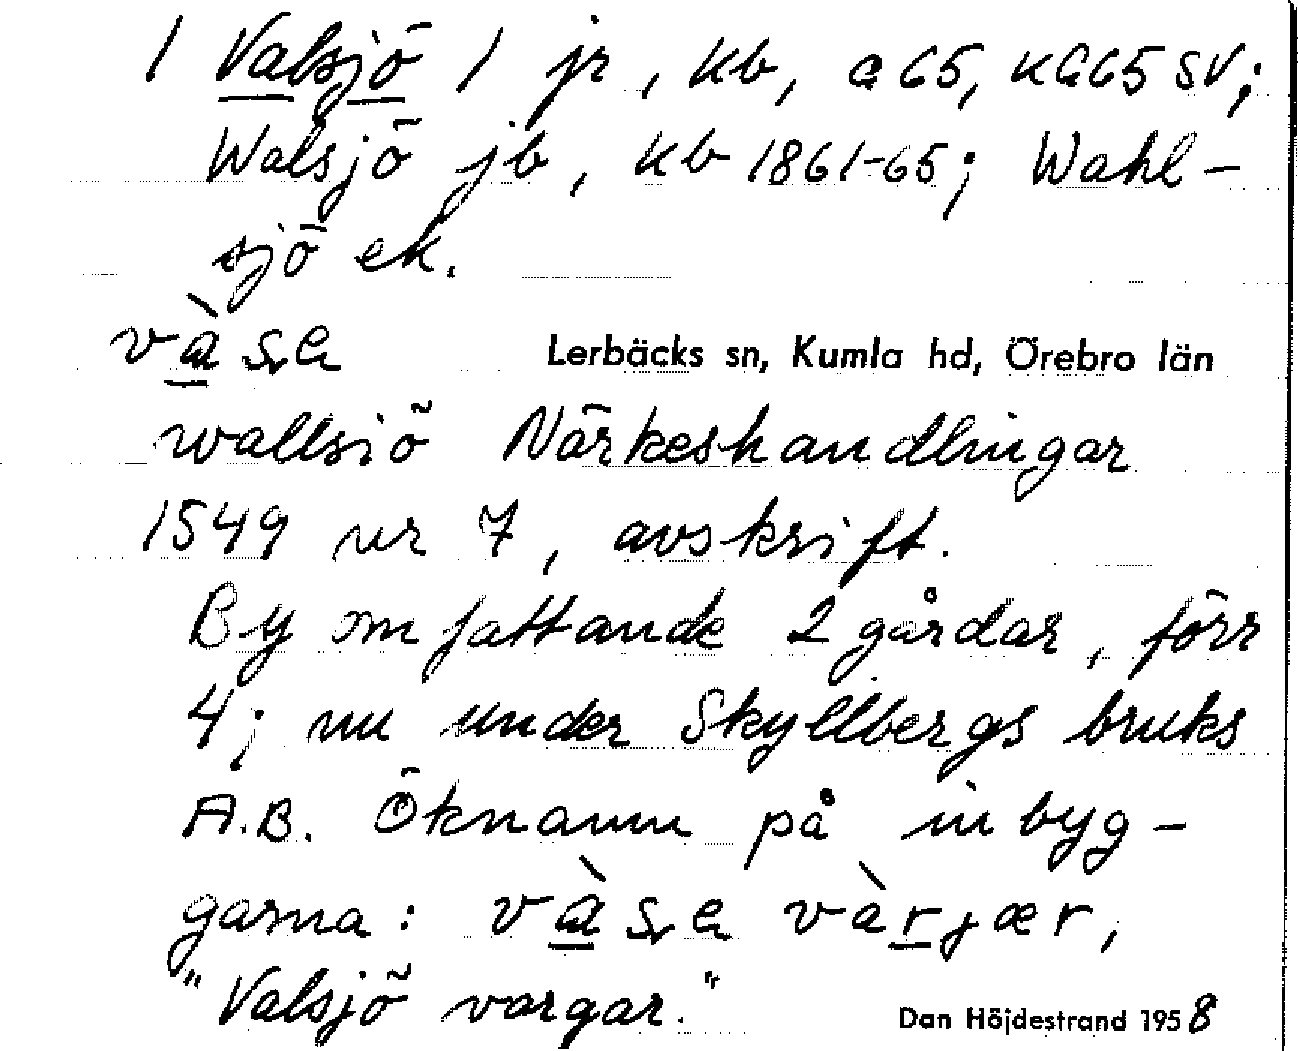 1 Valsjö / jr, kb, a 65, KG65 SV;
Walsjö jb, kb 1861-65; Wahl-
sjö ek.
Lerbäcks sn, Kumla hd, Örebro län
wallsiö Närkeshandlingar
1549 nr 7, avskrift.
By omfattande 2 gårdar, förr
4; nu under Skyllbergs bruks
A.B. Öknamn på inbyg-
garna:
"Valsjö vargar."
Dan Höjdestrand 1958